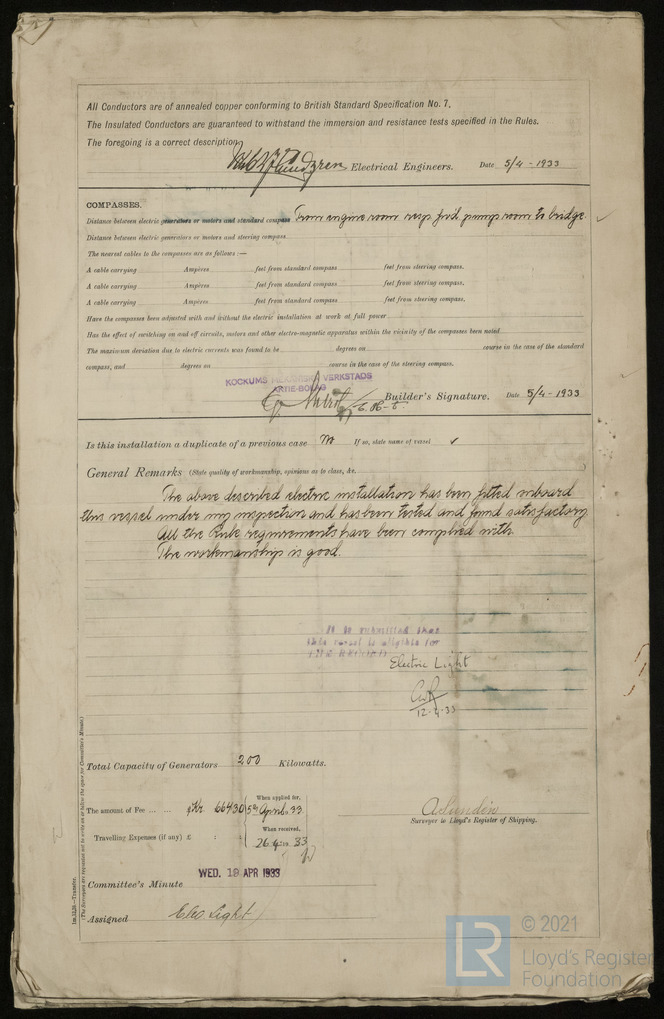 All Conductors are of annealed copper conforming to British Standard Specification No. 7.
The Insulated Conductors are guaranteed to withstand the immersion and resistance tests specified in the Rules.
The foregoing is a correct description,
Lundgren Electrical Engineers. Date 5/4-1933
COMPASSES.
Distance between electric generators or motors and standard compass From engine room resp fwd. pump room to bridge.
Distance between electric generators or motors and steering compass
The nearest cables to the compasses are as follows :—
A cable carrying Ampères feet from standard compass feet from steering compass.
A cable carrying Ampères feet from standard compass feet from steering compass.
A cable carrying Ampères feet from standard compass feet from steering compass.
Have the compasses been adjusted with and without the electric installation at work at full power
Has the effect of switching on and off circuits, motors and other electro-magnetic apparatus within the vicinity of the compasses been noted
The maximum deviation due to electric currents was found to be degrees on course in the case of the standard
compass, and degrees on course in the case of the steering compass.
KOCKUMS MEKANISKA VERKSTADS
AKTIE-BOLAG
Builder's Signature. Date 5/4-1933
Is this installation a duplicate of a previous case No If so, state name of vessel ✓
General Remarks (State quality of workmanship, opinions as to class, &c.
The above described electric installation has been fitted onboard
this vessel under my inspection and has been tested and found satisfactory
All the Rule requirements have been complied with.
The workmanship is good.
It is submitted that
this vessel is eligible for
THE RECORD
Electric Light
12-4-33
Total Capacity of Generators 200 Kilowatts.
The amount of Fee ... ... £ Kr. 664.30 When applied for, 5th April 33
Travelling Expenses (if any) £ : : When received, 26.4.1933
A Lundin
Surveyor to Lloyd's Register of Shipping.
WED. 19 APR 1933
Committee's Minute
Assigned Elec Light
1m.12.30.—Transfer.
(The Surveyors are requested not to write on or below the space for Committee's Minute.)
LR
© 2021
Lloyd's Register
Foundation